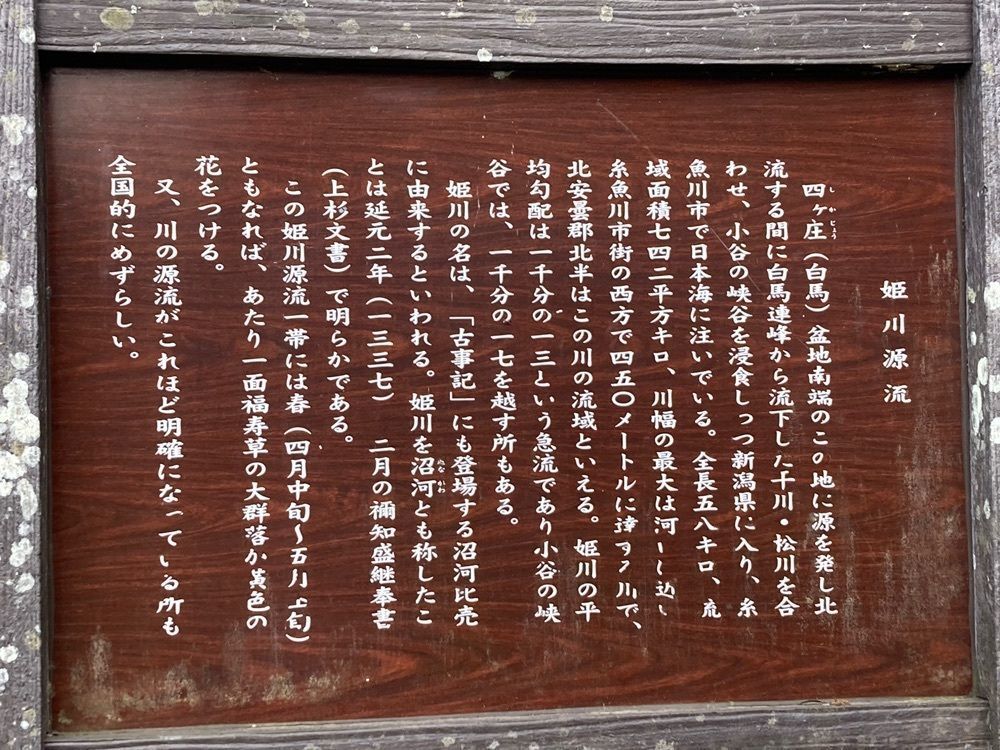 姫川源流
四ヶ庄(白馬)盆地南端のこの地に源を発し北
流する間に白馬連峰から流下した平川・松川を合
わせ、小谷の峡谷を浸食しつつ新潟県に入り、糸
魚川市で日本海に注いでいる。全長五八キロ、流
域面積七四二平方キロ、川幅の最大は河口
糸魚川市街の西方で四五〇メートルに達する川で、
北安曇郡北半はこの川の流域といえる。姫川の平
均勾配は一千分の一三という急流であり小谷の峡
谷では、一千分の一七を越す所もある。
姫川の名は、「古事記」にも登場する沼河比売
に由来するといわれる。姫川を沼河とも称したこ
とは延元二年(一三三七) 二月の禰知盛継奉書
(上杉文書)で明らかである。
この姫川源流一帯には春(四月中旬〜五月上旬)
ともなれば、あたり一面福寿草の大群落が黄色の
花をつける。
又、川の源流がこれほど明確になっている所も
全国的にめずらしい。